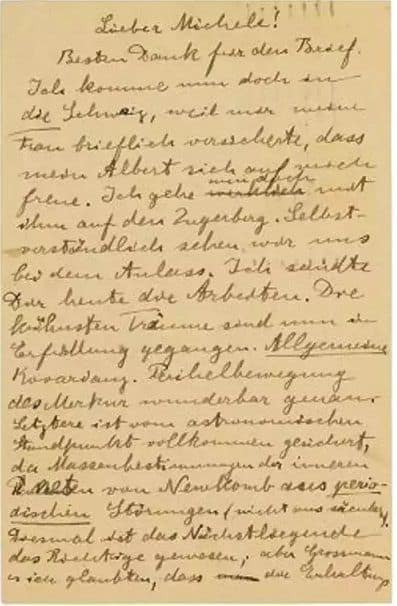 Lieber Michele!
Besten Dank für den Brief.
Ich komme nun doch in
die Schweiz, weil mir meine
Frau brieflich versicherte, dass
mein Albert sich auf mich
freue. Ich gehe nun doch wirklich mit
ihm auf den Zugerberg. Selbst-
verständlich sehen wir uns
bei dem Anlass. Ich sandte
Dir heute die Arbeiten. Die
kühnsten Träume sind nun in
Erfüllung gegangen. Allgemeine
Kovarianz. Perihelbewegung
des Merkur wunderbar genau.
Letztere ist vom astronomischen
Standpunkt vollkommen gesichert,
da Massenbestimmungen der inneren
Planeten von Newkomb aus perio-
dischen Störungen (nicht aus säcular)
Diesmal ist das Nächstliegende
das Richtige gewesen; aber Grossmann
u ich glaubten, dass die Erhaltungs